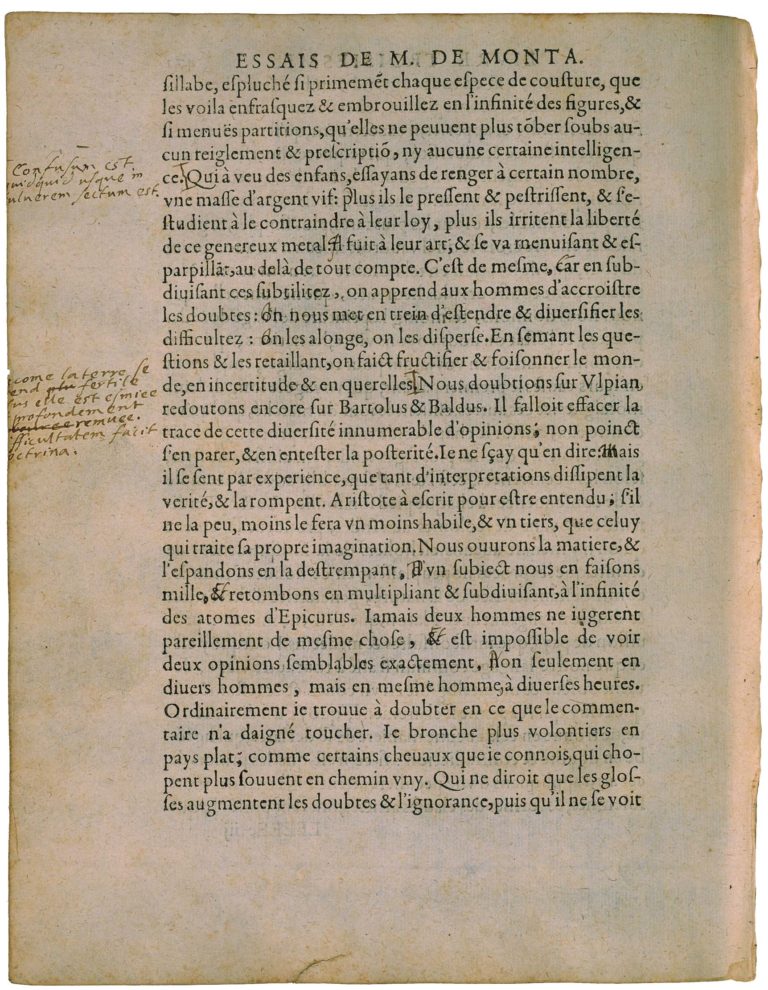 ESSAIS DE M. DE MONTA.
sillabe, espluché si primemēt chaque espece de cousture, que
les voila enfrasquez & embrouillez en l'infinité des figures, &
si menuës partitions, qu'elles ne peuuent plus tōber soubs au-
cun reiglement & prescriptiō, ny aucune certaine intelligen-
ce. Qui à veu des enfans, essayans de renger à certain nombre,
vne masse d'argent vif: plus ils le pressent & pestrissent, & s'e-
studient à le contraindre à leur loy, plus ils irritent la liberté
de ce genereux metal: Il fuit à leur art, & se va menuisant & es-
parpillāt, au delà de tout compte. C'est de mesme, Car en sub-
diuisant ces subtilitez, on apprend aux hommes d'accroistre
les doubtes: On nous met en trein d'estendre & diuersifier les
difficultez: On les alonge, on les disperse. En semant les que-
stions & les retaillant, on faict fructifier & foisonner le mon-
de, en incertitude & en querelles Nous doubtions sur Vlpian,
redoutons encore sur Bartolus & Baldus. Il falloit effacer la
trace de cette diuersité innumerable d'opinions; non poinct
s'en parer, & en entester la posterité. Ie ne sçay qu'en dire Mais
il se sent par experience, que tant d'interpretations dissipent la
verité, & la rompent. Aristote à escrit pour estre entendu; s'il
ne la peu, moins le fera vn moins habile, & vn tiers, que celuy
qui traite sa propre imagination. Nous ouurons la matiere, &
l'espandons en la destrempant, D'vn subiect nous en faisons
mille, Et retombons en multipliant & subdiuisant, à l'infinité
des atomes d'Epicurus. Iamais deux hommes ne iugerent
pareillement de mesme chose, Et est impossible de voir
deux opinions semblables exactement, Non seulement en
diuers hommes, mais en mesme homme, à diuerses heures.
Ordinairement ie trouue à doubter en ce que le commen-
taire n'a daigné toucher. Ie bronche plus volontiers en
pays plat; comme certains cheuaux que ie connois, qui cho-
pent plus souuent en chemin vny. Qui ne diroit que les glos-
ses augmentent les doubtes & l'ignorance, puis qu'il ne se voit
Confusum est
quidquid usque in
puluerem sectum est
come la terre se
rend fertile
plus elle est esmiee
profondement
remuee.
difficultatem facit
doctrina.